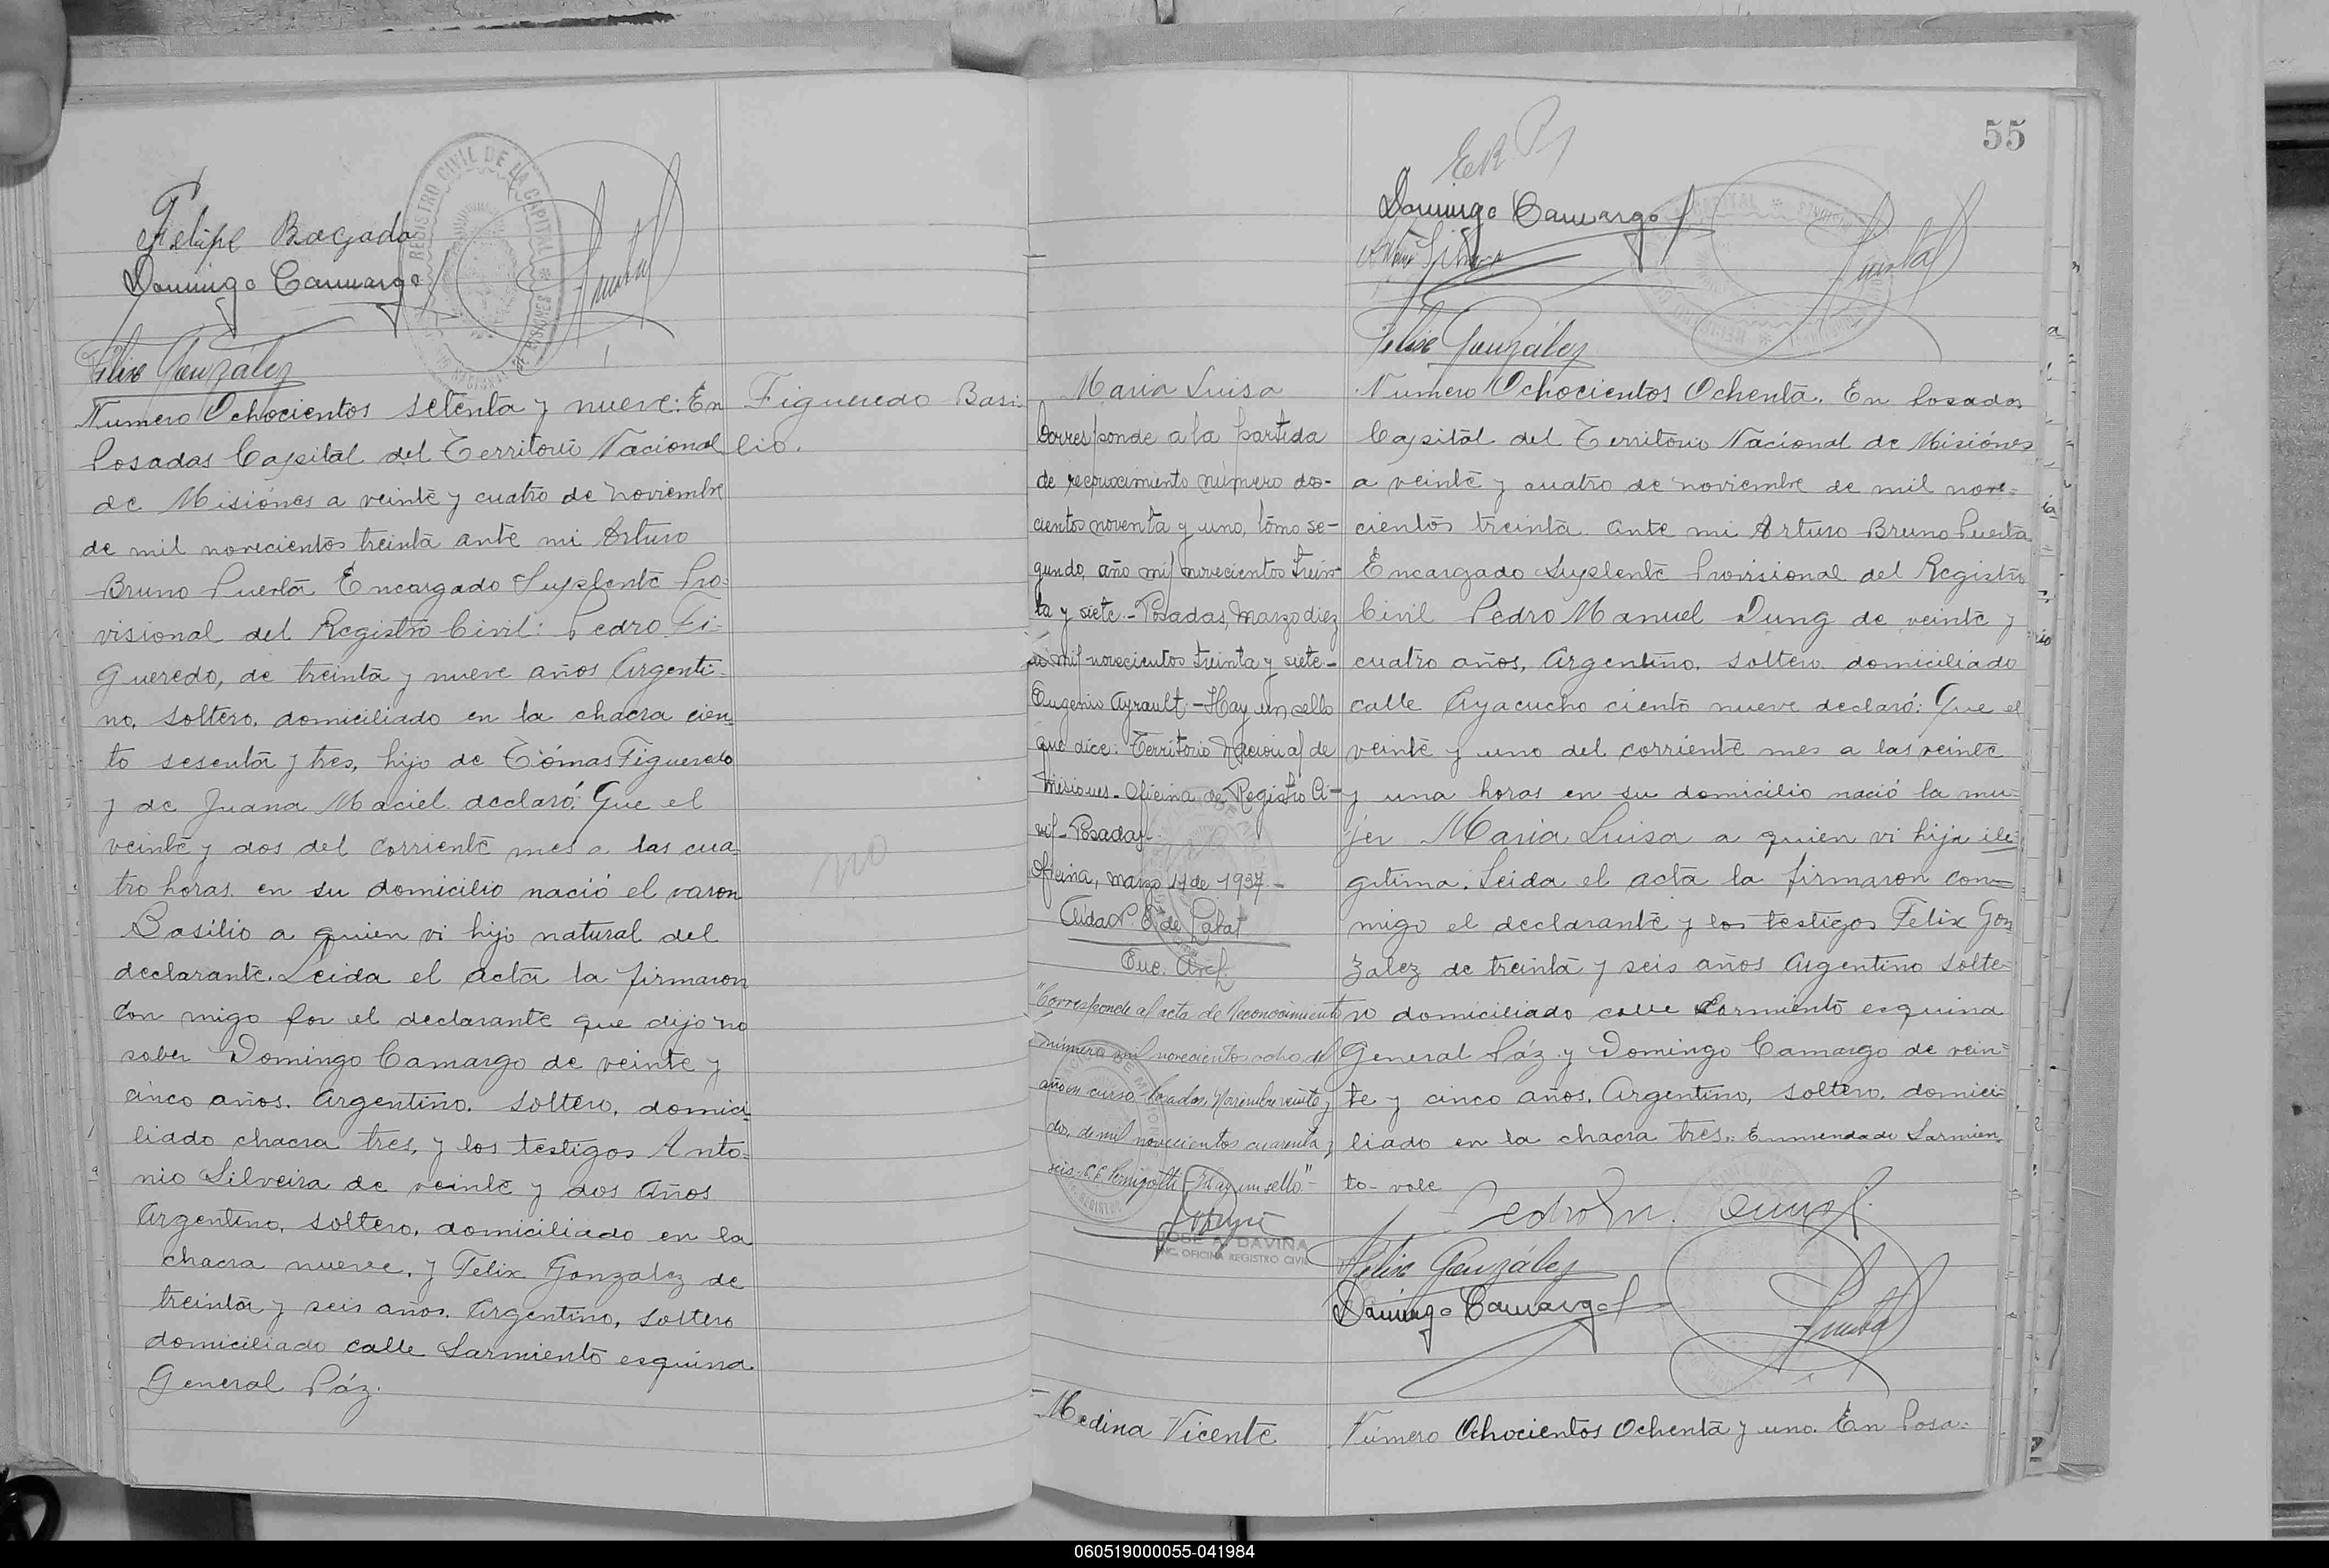 REGISTRO CIVIL DE LA CAPITAL
Felipe Bogado
Domingo Camargo
Felix González
Numero Ochocientos setenta y nueve: En
Posadas Capital del Territorio Nacional
de Misiónes a veinte y cuatro de noviembre
de mil novecientos treinta ante mi Arturo
Bruno Puerta Encargado Suplente Pro=
visional del Registro Civil: Pedro Fi=
gueredo, de treinta y nueve años Argenti=
no, soltero, domiciliado en la chacra cien
to sesenta y tres, hijo de Tómas Figueredo
y de Juana Maciel declaró: Que el
veinte y dos del corriente mes a las cua=
tro horas en su domicilio nació el varon
Basilio a quien vi hijo natural del
declarante. Leida el acta la firmaron
con migo por el declarante que dijo no
saber Domingo Camargo de veinte y
cinco años. Argentino. soltero, domici=
liado chacra tres, y los testigos Anto=
nio Silveira de veinte y dos años
Argentino, soltero, domiciliado en la
chacra nueve, y Felix Gonzalez de
treinta y seis años. Argentino, soltero
domiciliado calle Sarmiento esquina
General Páz.
Figueredo Basi
lio.
no
55
Domingo Camargo
Felix González
Maria Luisa
Corresponde a la partida
de reconocimiento número dos-
cientos noventa y uno, tomo se-
gundo, año mil novecientos trein-
ta y siete.- Posadas, marzo diez
de mil novecientos treinta y siete-
Eugenio Ayrault.- Hay un sello
que dice: Territorio Nacional de
Misiones. Oficina de Registro Ci-
vil - Posadas-
Oficina, marzo 11 de 1937.-
"Corresponde al acta de Reconocimiento
número mil novecientos ocho del
año en curso. Posadas, Noviembre veinte y
dos, de mil novecientos cuarenta y
seis. Hay un sello."-
JOSE A. DAVIÑA
ENC. OFICINA REGISTRO CIVIL
Numero Ochocientos Ochenta. En Posadas
Capital del Territorio Nacional de Misiónes
a veinte y cuatro de noviembre de mil nove=
cientos treinta. ante mi Arturo Bruno Puerta
Encargado Suplente Provisional del Registro
Civil Pedro Manuel Dung de veinte y
cuatro años, Argentino, soltero domiciliado
calle Ayacucho ciento nueve declaró: Que el
veinte y uno del corriente mes a las veinte
y una horas en su domicilio nació la mu=
jer Maria Luisa a quien vi hija ile=
gitima. Leida el acta la firmaron con=
migo el declarante y los testigos Felix Gon
zalez de treinta y seis años Argentino solte=
ro domiciliado calle Sarmiento esquina
General Páz y Domingo Camargo de vein=
te y cinco años. Argentino, soltero, domici=
liado en la chacra tres.. Enmendado Sarmien
to- vale
Pedro M. Dung
Felix González
Domingo Camargo
Medina Vicente
Número Ochocientos Ochenta y uno. En Posa=
060519000055-041984